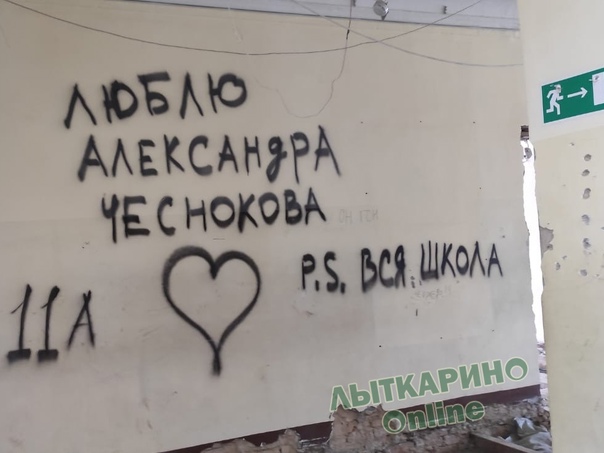 ЛЮБЛЮ
АЛЕКСАНДРА
ЧЕСНОКОВА
P.S. ВСЯ ШКОЛА
11А
ЛЫТКАРИНО
Online